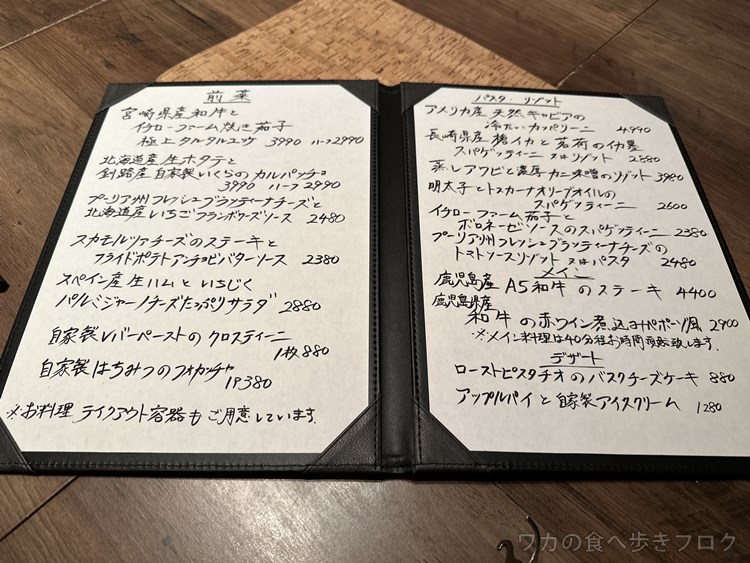 前菜
宮崎県産和牛と
イチローファーム焼き茄子
極上タルタルユッケ 3990 ハーフ2990
北海道産生ホタテと
釧路産自家製いくらのカルパッチョ
3990 ハーフ2990
プーリア州フレッシュブラッティーナチーズと
北海道産いちごフランボワーズソース 2480
スカモルツァチーズのステーキと
フライドポテトアンチョビバターソース 2380
スペイン産生ハムといちじく
パルミジャーノチーズたっぷりサラダ 2880
自家製レバーペーストのクロスティーニ
1枚880
自家製はちみつのフォカッチャ
1P380
※お料理 テイクアウト容器もご用意しています。
パスタ・リゾット
アメリカ産 天然キャビアの
冷たいカッペリーニ 4,990
長崎県産槍イカと茗荷のイカ墨
スパゲッティーニ 又はリゾット 2880
蒸しアワビと濃厚カニ味噌のリゾット 3980
明太子とトスカーナオリーブオイルの
スパゲッティーニ 2600
イチローファーム茄子と
ボロネーゼソースのスパゲッティーニ 2380
プーリア州フレッシュブラッティーナチーズの
トマトソースリゾット 又はパスタ 2480
メイン
鹿児島産 A5和牛のステーキ 4400
鹿児島県産
和牛の赤ワイン煮込みポーポ風 2900
※メイン料理は40分程お時間頂戴致します。
デザート
ローストピスタチオのバスクチーズケーキ 880
アップルパイと自家製アイスクリーム 1280
ワカの食べ歩きブログ